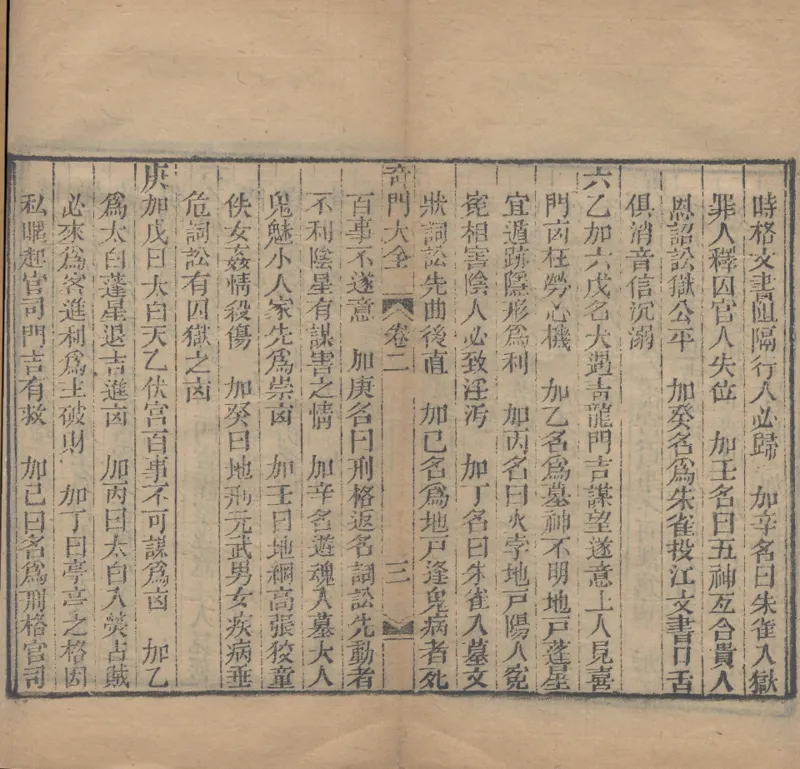 時格文書阻隔行人必歸　加辛名曰朱雀入獄
罪人釋囚官人失位　加壬名曰五神互合貴人
恩詔訟獄公平　加癸名為朱雀投江文書口舌
俱消音信沉溺
六乙加六戊名大遇吉龍門吉謀望遂意上人見喜
門㐫枉勞心機　加乙名為墓神不明地戸蓬星
宜遁跡隱形為利　加丙名曰火孛地戸陽人寃
寃相害陰人必致淫沔　加丁名曰朱雀入墓文
狀詞訟先曲後直　加己名為地戸逢鬼病者死
奇門大全　卷二　三
百事不遂意　加庚名曰刑格返名詞訟先動者
不利陰星有謀害之情　加辛名遊魂入墓大人
鬼魅小人家先為祟㐫　加壬曰地網高張狡童
佚女姦情殺傷　加癸曰地刑元武男女疾病垂
危詞訟有囚獄之㐫
庚加戊曰太白天乙伏宮百事不可謀為㐫　加乙
為太白蓬星退吉進㐫　加丙曰太白入熒占賊
必來為客進利為主破財　加丁曰亭亭之格因
私暱起官司門吉有救　加己曰名為刑格官司